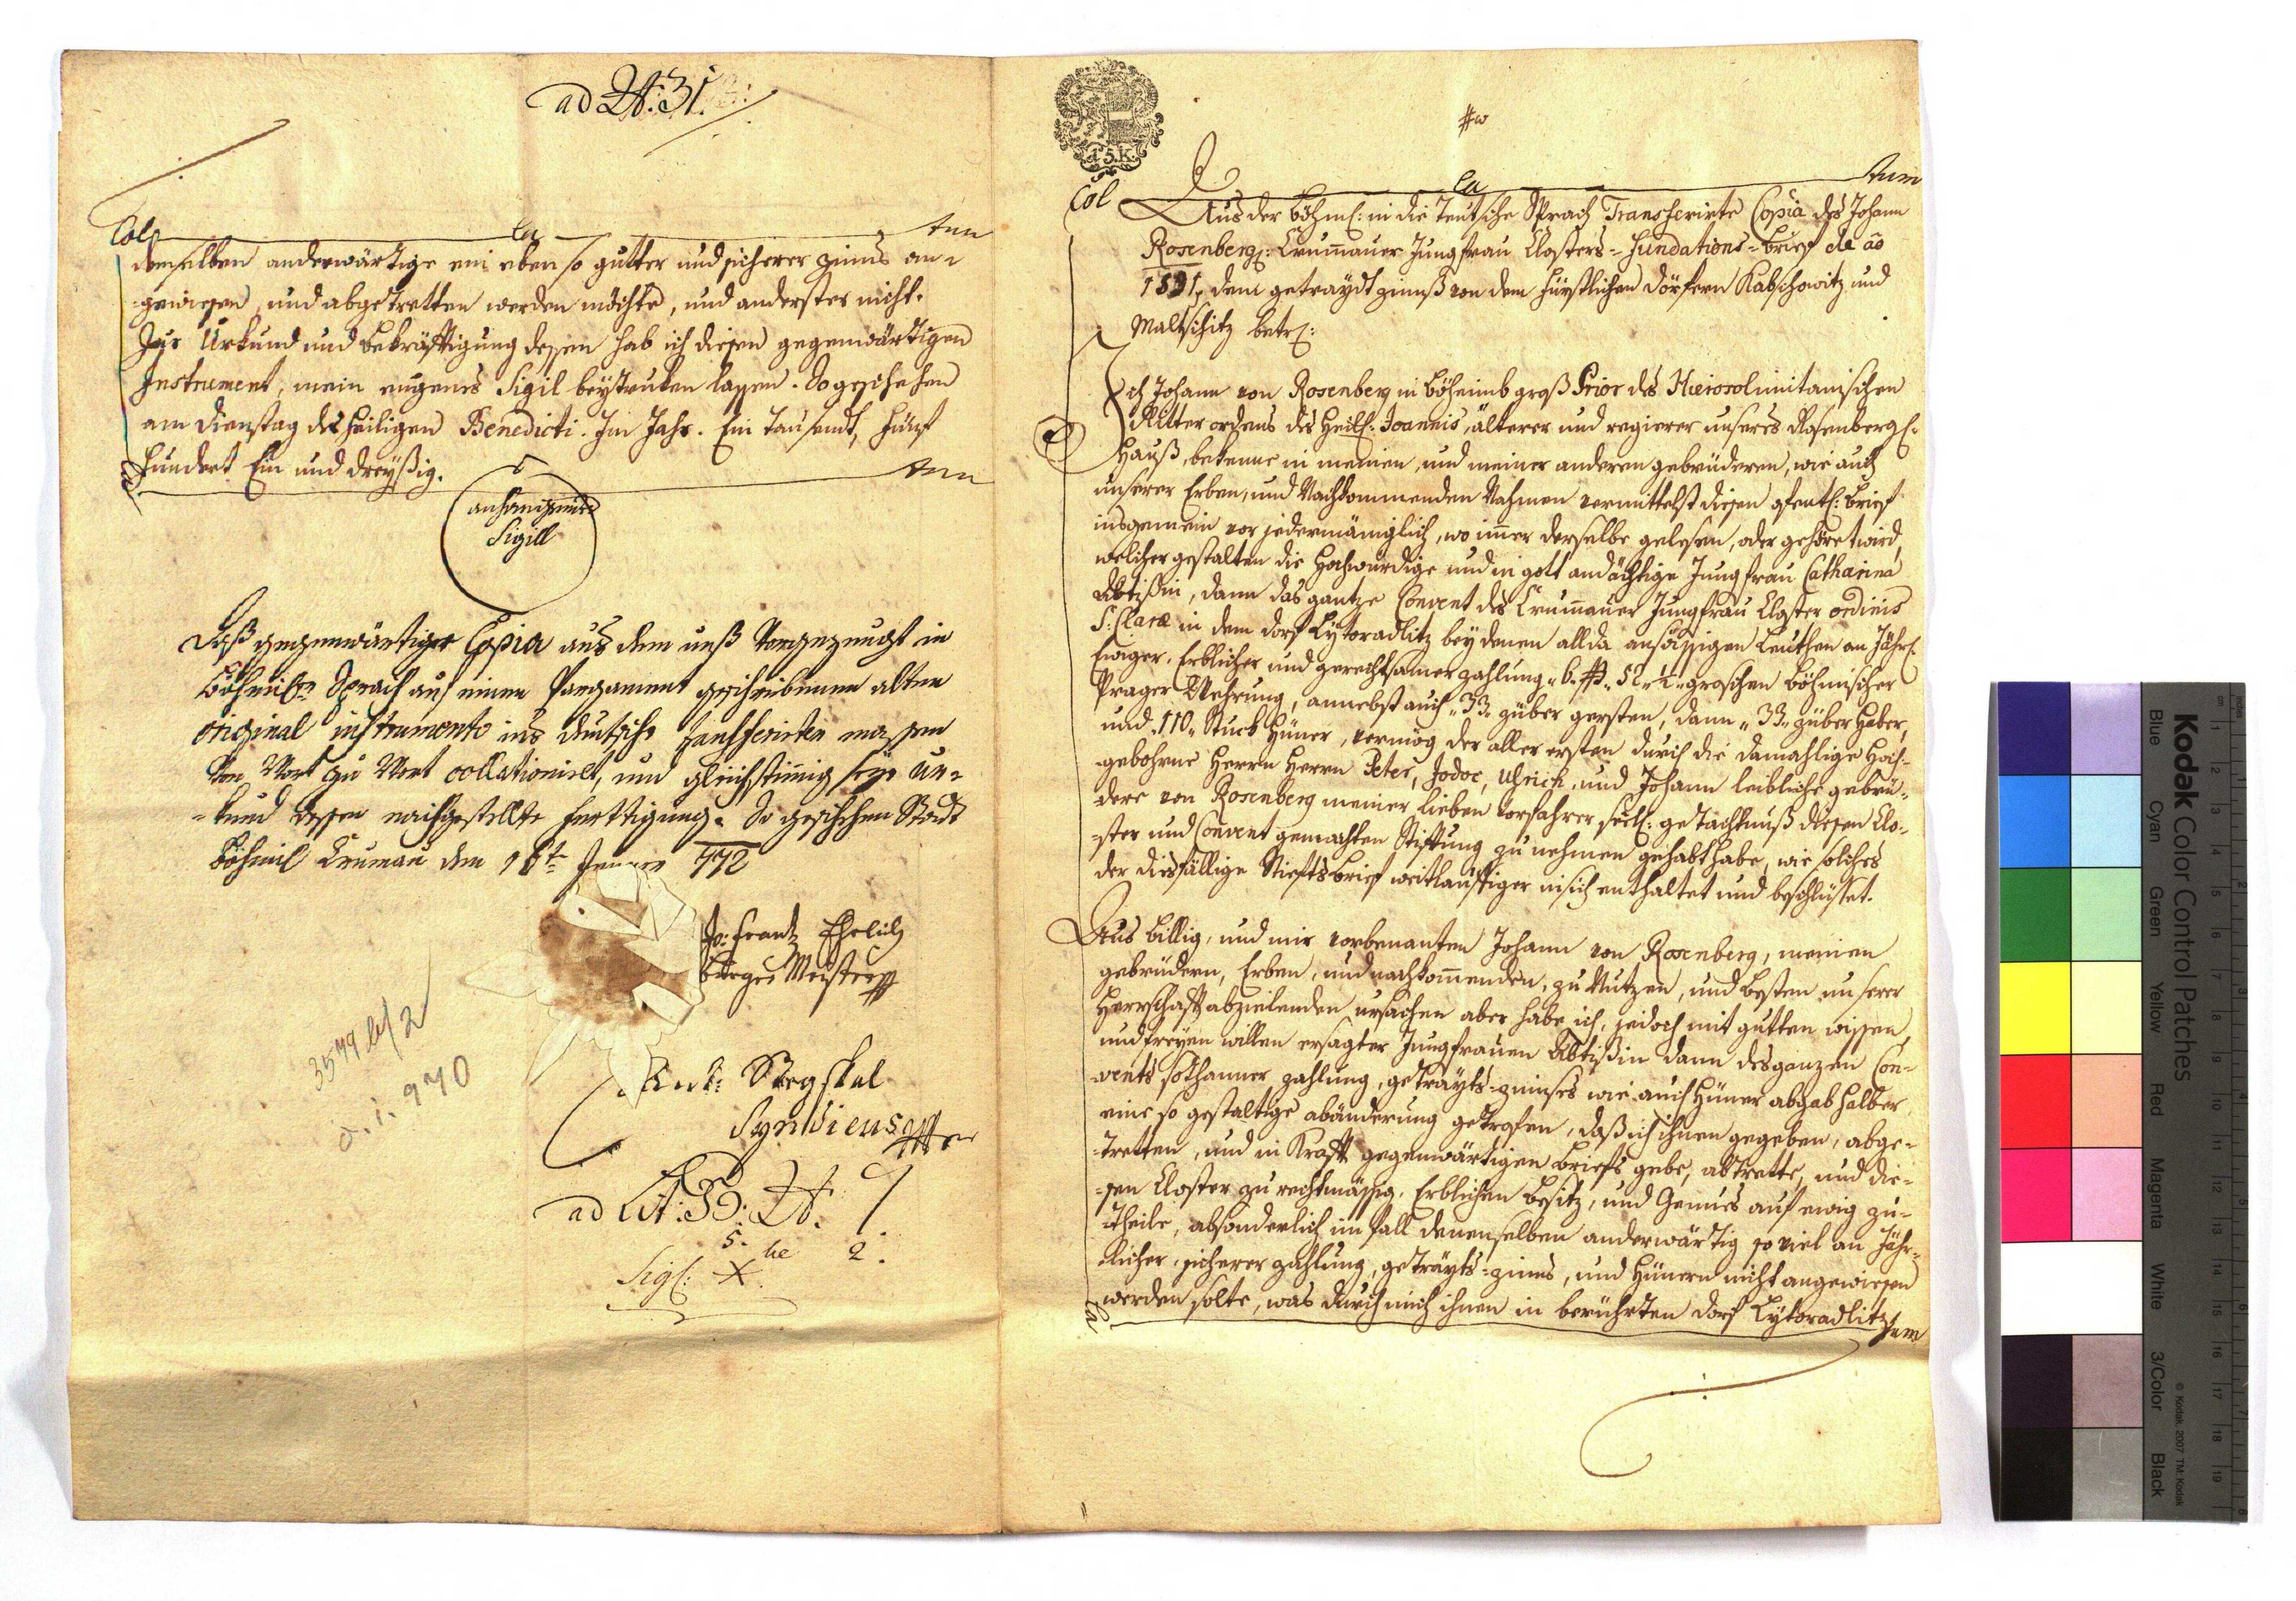 ad N: 31.
Col la tum
demselben anderwärtige ein eben so gutter und sicherer zinns an-
gewiesen, und abgetretten werden möchte, und anderster nicht.
Zur Urkund und bekräfftigung dessen hab ich diesen gegenwärtigen
Instrument, mein eigenes Sigil beystruken lassen. So geschehen
am Dienstag des heiligen Benedicti. Im Jahr. Ein Tausendt, Fünf
hundert Ein und dreyßig.
la tum
anhangendes
Sigill
Daß gegenwärtiger Copia aus dem unß Vorgezeugt in
Böhmischer Sprach auf einen Pargament geschriebenen alten
original instrumento ins deutsche transferirten massen
Von Wort zu Wort collationirt, und gleichstimig seye Ur-
-kund dessen nachgestellte Ferttigung. So geschehen Stadt
Böhmisch Crumau den 16t Jenner 772
Jo: Frantz Ehrlich
Burger Meister
Ant:
Syndicus
ad Lit: B: N:
5. he 2.
Sigl: X
3579 bf/2
i. 970
15.K.
Col la tum
Aus der Böhml: in die Teutsche Sprach Transferirte Copia des Johann
Rosenbergl: Crumauer Jungfrau Closters-Fundations-brief de ao
1531, dem getraydt zinnß von dem fürstlichen Dörfern Kabschowitz und
Maltschitz betrl:
Ich Johann von Rosenberg in Böheimb groß Prior des Hierosolimitanischen
Ritter ordens des Heill: Joannis, älterer und regierer unseres Rosenbergl:
Hauß, bekenne in meinen, und meiner anderen gebrüderen, wie auch
unserer Erben, und Nachkommenden Nahmen vermittelst diesen ofentl: brief
insgemein vor jedermäniglich, wo imer derselbe gelesen, oder gehöret wird,
welcher gestalten die Hochwürdige und in gott andächtige Jungfrau Catharina
Abtißin, dann das gantze Convent des Crumauer Jungfrau Closter ordinis
S: Claræ in dem dorf Lytoradlitz bey denen allda ansässigen Leuthen an Jährl:
Ewiger, Erblicher und gerechtsamer zahlung „6. ß„ 52 „½„ groschen böhmischer
Prager Wehrung, annebst auch „33„ züber gersten, dann „33„ züber Haber,
und „110„ Stuck Hüner, vermög der aller ersten durch die damahlige Hoch-
gebohrne Herrn Herrn Peter, Jodoc, Ulrich, und Johann leibliche gebrü-
dere von Rosenberg meiner lieben Vorfahrer seel: gedächtnuß diesen Clo-
-ster und Convent gemachten Stiftung zu nehmen gehabt habe, wie solches
der diesfällige Stiftsbrief weitläuftiger in sich enthaltet und beschlüsset.
Aus billig, und mir vorbenanten Johann von Rosenberg, meinen
gebrüdern, Erben, und nachkommenden, zu Nutzen, und besten unserer
Herrschaft abzielenden ursachen aber habe ich, jedoch mit gutten wissen,
und freyen willen ersagter Jungfrauen Abtißin dann des ganzen Con-
-vents sothanner zahlung, getrayts-zinnses wie auch Hüner abgab halber
eine so gestaltige abänderung getrofen, daß ich ihnen gegeben, abge-
-tretten, und in Kraft gegenwärtigen briefs gebe, abtrette, und die-
-sen Closter zu rechtmäßig, Erblichen besitz, und Genus auf ewig zu-
-theile, absonderlich im fall denenselben anderwärtig so viel an Jähr-
-licher, sicherer zahlung, getrayts-zinns, und Hünern nicht angewiesen
werden solte, was durch mich ihnen in berührten dorf Lytoradlitz
la tum